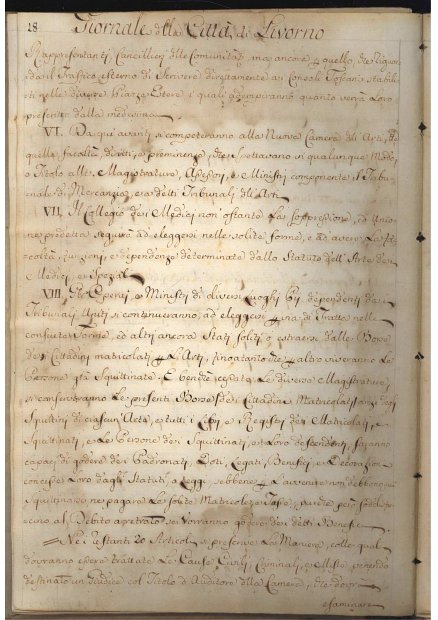 28 Giornale della Città di Livorno
Rappresentanti Cancellieri delle Comunità, ma ancora p quello, che riguar
da il Traffico esterno di Scrivere direttamente ai Consoli Toscani stabili
ti nelle diverse Piazze Estere i quali adempiranno quanto verrà Loro
prescritto dalla medesima
VI. Da qui avanti si competeranno alla Nuova Camera di Arti, 
quelle facoltà, diritti, e preminenze, che spettavano in qualunque Modo,
o Titolo alle Magistrature, e Ministri componenti il Tribu
nale di Mercanzia, e ai detti Tribunali dell'Arti
VII. Il Collegio dei Medici non ostante La soppressione, ed Unio
ne predetta seguirà ad eleggersi nelle solite forme, e ad avere La fa
coltà, e dipendenze determinate dallo Statuto dell'Arte dei
Medici, e Spezali
VIII. e Ministri di diversi Luoghi Pii dipendenti da i
Tribunali Uniti si continueranno, ad eleggersi p via di Tratte nelle
consuete forme, ed altri ancora Stati soliti estrarsi dalle Borse
dei Cittadini matricolati p Le Arti, fino a tanto che p altro viveranno Le
Persone già Squittinate. E benchè Le diverse Magistrature,
si conserveranno Le presenti Borse dei Cittadini Matricolati, 
Squittini di ciascun'Arte, e tutti i Libri e Registri dei Matricolati, e
Squittinati, e Le Persone dei Squittinati, e Loro descendenti, saranno
capaci di godere dei Padronati, Doti, Legati, Benefizi, e Decorazioni
concesse Loro dagli Statuti, e Leggi, sebbene p L'avvenire non debbono più
Squittinarsi ne pagare La solita Matricola, e Tasse, 
al Debito arretrato se vorranno godere dei detti Benefizi
Nei restanti 20 Articoli si prescrive La Maniera, colla quale
dovranno essere trattate Le Cause Civili, Criminali, e Miste, venendo
destinato un Giudice col Titolo d'Auditore della Camera, che dovrà
esaminare